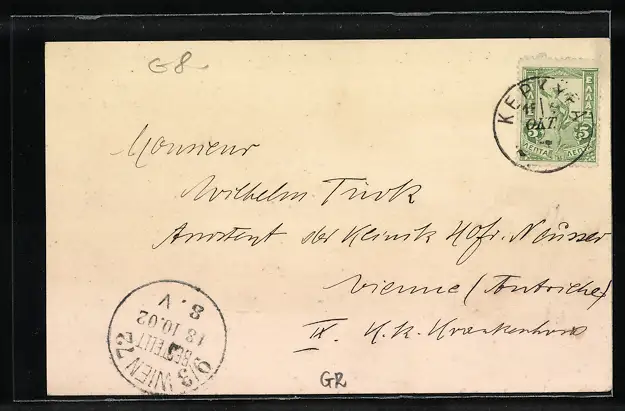 G8
ΚΕΡΚΥΡΑ
ΟΚΤ.
ΕΛΛΑΣ
5 5
ΛΕΠΤΑ ΛΕΠΤΑ
Monsieur
Wilhelm Türk
Assistent der Klinik Hofr. Neusser
Vienne (Autriche)
IX. K. K. Krankenhaus
9/3 WIEN 72
BESTELLT
18 10.02
8. V
GR